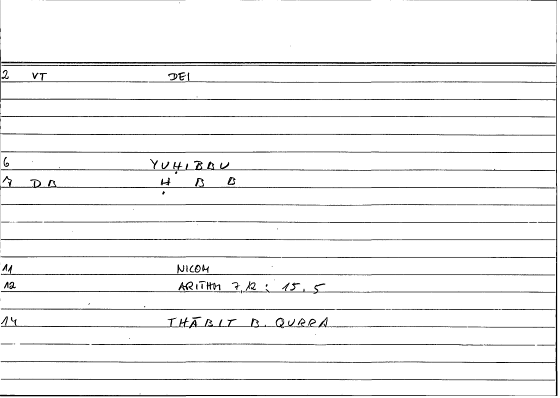 2 VT DEI
6 YUḤIBBU
7 DB Ḥ B B
11 NICOM
12 ARITHM 7,12 : 15.5
14 THĀBIT B. QURRA